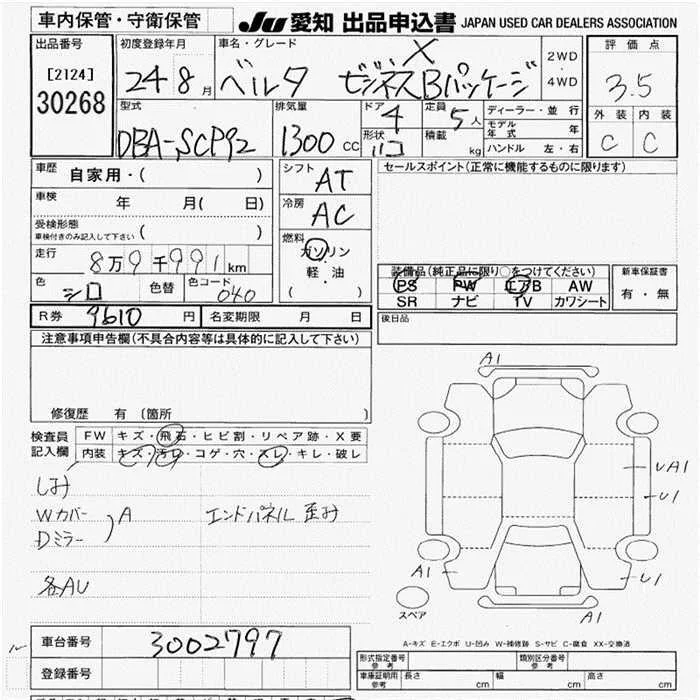 車内保管・守衛保管
JU 愛知 出品申込書 JAPAN USED CAR DEALERS ASSOCIATION
出品番号
[2124]
30268
初度登録年月
24年8月
車名・グレード
ベルタ X ビジネスBパッケージ
2WD
4WD
評価点
3.5
外装 内装
C C
型式
DBA-SCP92
排気量
1300cc
ドア 4
形状 ハコ
定員 5人
積載 kg
ディーラー・並行
モデル年式 年
ハンドル 左・右
車歴 自家用・( )
車検 年 月( 日)
受検形態
車検付きのみ記入して下さい ( )
走行 8万9千991km
色 シロ 色替 色コード 040
シフト AT
冷房 AC
燃料
ガソリン
・
軽・油
( )
セールスポイント(正常に機能するものに限ります)
装備品(純正品に限り○をつけてください)
PS PW エアB AW
SR ナビ TV カワシート
新車保証書
有・無
R券 9610円 名変期限 月 日
後日品
注意事項申告欄(不具合内容等は具体的に記入して下さい)
修復歴 有 (箇所 )
検査員
記入欄
FW キズ・飛石・ヒビ割・リペア跡・X要
内装 キズ・汚レ・コゲ・穴・スレ・キレ・破レ
しみ
Wカバー
Dミラー
A
エンドパネル 歪み
各AU
A1
UA1
U1
A1
U1
A1
スペア
A-キズ E-エクボ U-凹み W-補修跡 S-サビ C-腐食 XX-交換済
車台番号 3002797
登録番号
形式指定番号
参考
類別区分番号
参考
車庫証明用
参考
長さ cm 幅 cm 高さ cm